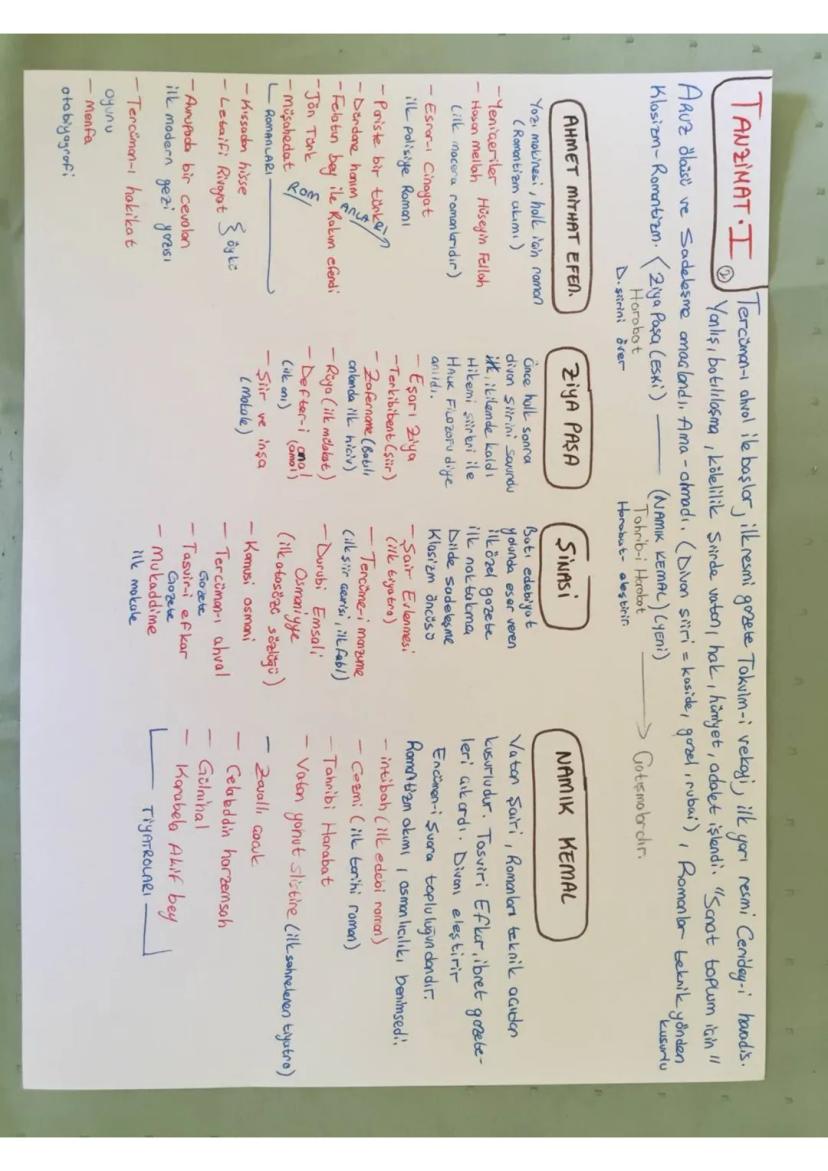 TANZİMAT-I
②
Tercüman-ı ahval ile başlar, ilk resmi gazete Takvim-i vekayi, ilk yarı resmi Ceridey-i havadis.
Yanlış batılılaşma, kölelilik Şiirde vatan, hak, hürriyet, adalet işlendi. "Sanat toplum için"
ARUZ ölçüsü ve Sadeleşme amaçlandı. Ama-olmadı. (Divan şiiri = kaside, gazel, rubai), Romanlar teknik yönden
kusurlu
Klasizm-Romantizm. (Ziya Paşa (ESKİ) ——— (NAMIK KEMAL) (yeni)
Harabat
D. şiirini över
Tahrib-i Harabat
Harabat-eleştirir
→ Çatışmalardır.
AHMET MİTHAT EFEN.
Yazı makinesi, halk için roman
(Romantizm akımı)
- Yeniçeriler
- Hasan mellah Hüseyin Fellah
(ilk macera romanlarıdır)
- Esrar-ı Cinayat
ilk polisiye Romanı
- Pariste bir türk
- Dürdane hanım
- Felatun bey ile Rakun efendi
- Jön Türk
- Müşahedat
ROMANLARI
- Kıssadan hisse
- Letaifi Rivayat } öykü
- Avrupada bir cevelan
ilk modern gezi yazısı
- Tercüman-ı hakikat
oyunu
- Menfa
otobiyografi
ZİYA PAŞA
Önce halk sonra
divan şiirini savundu
ilk, ikilemde kaldı
Hikemi şiirleri ile
Halk Filozofu diye
anıldı.
- Eşarı Ziya
- Terkibibent (şiir)
- Zafername (Batılı
anlamda ilk hiciv)
- Rüya (ilk mülakat)
- Defter-i amal
(amal)
(ilk anı)
- Şiir ve inşa
(makale)
ŞİNASİ
Batı edebiyat
yolunda eser veren
ilk özel gazete
ilk noktalama
Dilde sadeleşme
Klasizm öncüsü
- Şair Evlenmesi
(ilk tiyatro)
- Tercüme-i manzume
(ilk şiir çevirisi, ilk fabl)
- Durubi Emsali
Osmaniyye
(ilk atasözü sözlüğü)
- Kamusi osmani
- Tercüman-ı ahval
Gazete
- Tasvir-i efkar
Gazete
- Mukaddime
ilk makale
NAMIK KEMAL
Vatan Şairi, Romanları teknik açıdan
kusurludur. Tasviri Efkar, ibret gazete-
leri çıkardı. Divanı eleştirir
Encümen-i Şuara topluluğundandır.
Romantizm akımı, osmanlıcılıkı benimsedi.
- intibah (ilk edebi roman)
- Cezmi (ilk tarihi roman)
- Tahribi Harabat
- Vatan yahut Silistire (ilk sahnelenen tiyatro)
- Zavallı çocuk
- Celalddin harzemşah
- Gülnihal
- Karabela Akif bey
TİYATROLARI